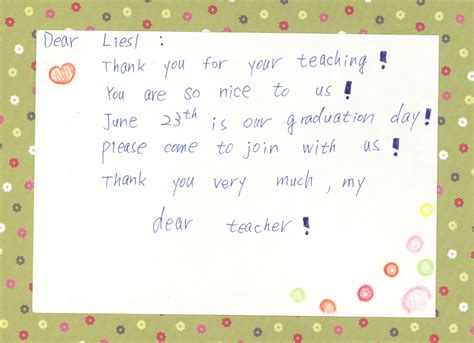 Dear Liesl :
Thank you for your teaching!
You are so nice to us!
June 23th is our graduation day!
please come to join with us!
Thank you very much, my
dear teacher!